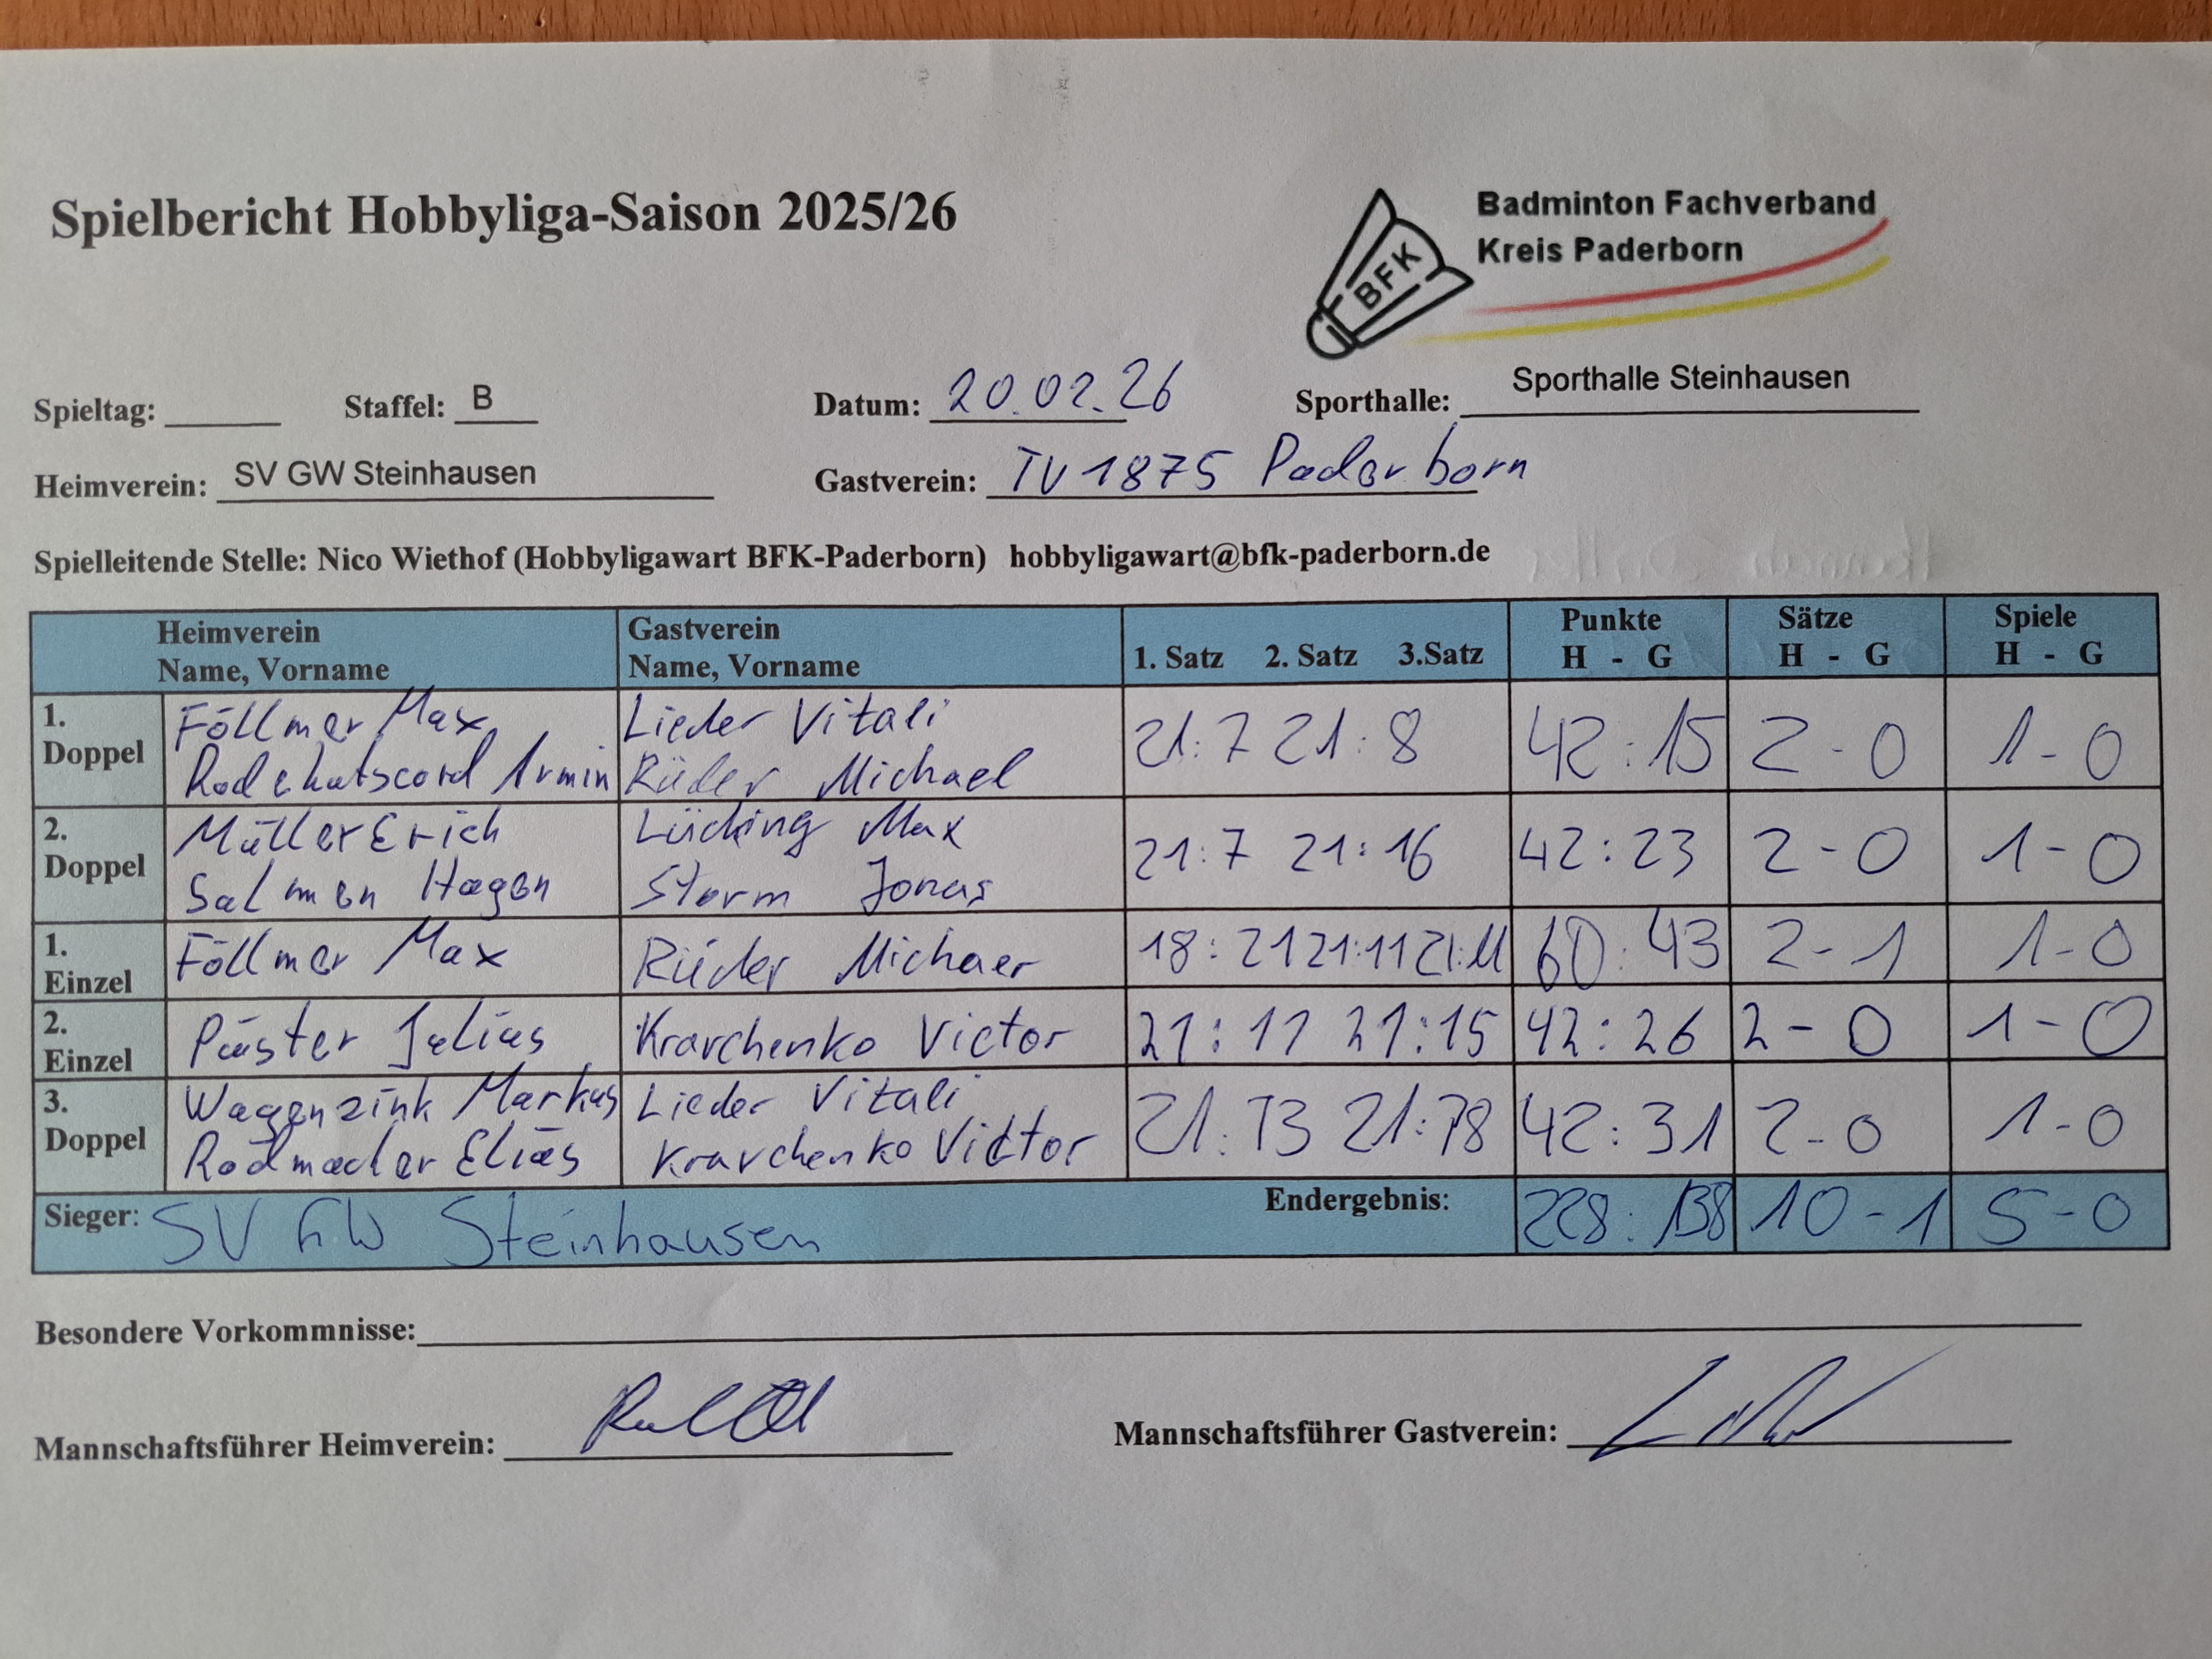 Spielbericht Hobbyliga-Saison 2025/26
Badminton Fachverband
Kreis Paderborn
BFK
Spieltag: Staffel: B Datum: 20.02.26 Sporthalle: Sporthalle Steinhausen
Heimverein: SV GW Steinhausen Gastverein: TV 1875 Paderborn
Spielleitende Stelle: Nico Wiethof (Hobbyligawart BFK-Paderborn) hobbyligawart@bfk-paderborn.de
Heimverein Gastverein Punkte Sätze Spiele
Name, Vorname Name, Vorname 1. Satz 2. Satz 3.Satz H - G H - G H - G
1. Doppel
Föllmer Max Lieder Vitali 21:7 21:8 42:15 2-0 1-0
Armin Rüder Michael
2. Doppel
Müller Erich Lücking Max 21:7 21:16 42:23 2-0 1-0
Salmen Hagen Storm Jonas
1. Einzel
Föllmer Max Rüder Michaer 18:21 21:11 21:11 60:43 2-1 1-0
2. Einzel
Püster Julius Kravchenko Victor 21:11 21:15 42:26 2-0 1-0
3. Doppel
Wagenzink Markus Lieder Vitali 21:13 21:18 42:31 2-0 1-0
Radmacher Elias Kravchenko Victor
Sieger: SV GW Steinhausen Endergebnis: 228:138 10-1 5-0
Besondere Vorkommnisse:
Mannschaftsführer Heimverein: Mannschaftsführer Gastverein: